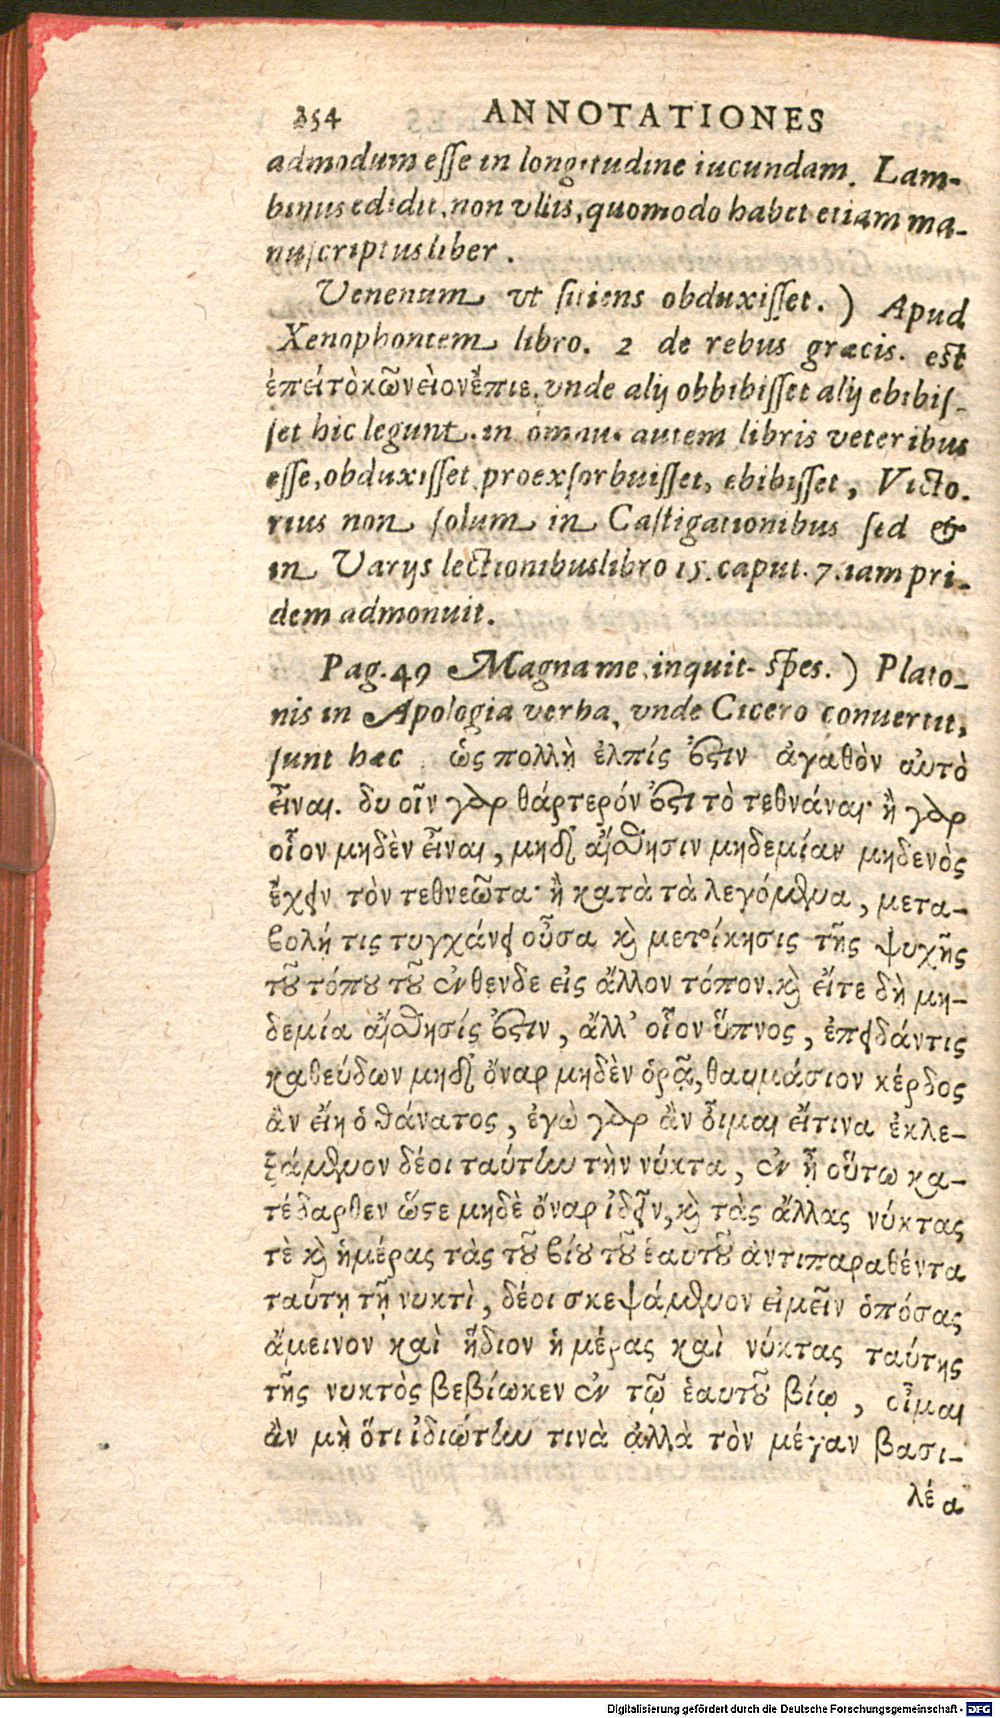 254 ANNOTATIONES
admodum esse in longitudine iucundam. Lam-
binus edidit, non vllis, quomodo habet etiam ma-
nuscriptus liber.
Venenum vt sitiens obduxisset.) Apud
Xenophontem libro. 2 de rebus græcis. est
ἐπεὶ τὸ κῶνειον ἔπιε, vnde alij obbibisset alij ebibis-
set hic legunt. in omnib autem libris veteribus
esse, obduxisset pro exsorbuisset, ebibisset, Victo.
rius non solum in Castigationibus sed &
in Varijs lectionibus libro 15. caput. 7. iam pri-
dem admonuit.
Pag. 49 Magna me, inquit, spes.) Plato-
nis in Apologia verba, vnde Cicero conuertit,
sunt hæc ὡς πολλὴ ἐλπίς ἐστιν ἀγαθὸν αὐτὸ
εἶναι. δυ οῖν γὰρ θάρτερόν ἐστι τὸ τεθνάναι· ἢ γὰρ
οἷον μηδὲν εἶναι, μηδ' αἴσθησιν μηδεμίαν μηδενὸς
ἔχειν τὸν τεθνεῶτα· ἢ κατὰ τὰ λεγόμενα, μετα-
βολή τις τυγχάνει οὖσα καὶ μετοίκησις τῆς ψυχῆς
τοῦ τόπου τοῦ ἐνθενδε εἰς ἄλλον τόπον. καὶ εἴτε δὴ μη-
δεμία αἴσθησίς ἐστιν, ἄλλ' οἷον ὕπνος, ἐπειδάντις
καθεύδων μηδ' ὄναρ μηδὲν ὁρᾷ, θαυμάσιον κέρδος
ἂν εἴη ὁ θάνατος, ἐγὼ γὰρ ἂν οἶμαι εἴτινα ἐκλε-
ξάμενον δέοι ταύτην τὴν νύκτα, ἐν ᾗ οὕτω κα-
τέδαρθεν ὥστε μηδὲ ὄναρ ἰδεῖν, καὶ τὰς ἄλλας νύκτας
τὲ καὶ ἡμέρας τὰς τοῦ βίου τοῦ ἑαυτοῦ ἀντιπαραθέντα
ταύτῃ τῇ νυκτὶ, δέοι σκεψάμενον εἰμεῖν ὁπόσας
ἄμεινον καὶ ἥδιον ἡμέρας καὶ νύκτας ταύτης
τῆς νυκτὸς βεβίωκεν ἐν τῷ ἑαυτοῦ βίῳ, οἶμαι
ἂν μὴ ὅτι ἰδιώτην τινὰ ἀλλὰ τὸν μέγαν βασι-
λέα
Digitalisierung gefördert durch die Deutsche Forschungsgemeinschaft - DFG